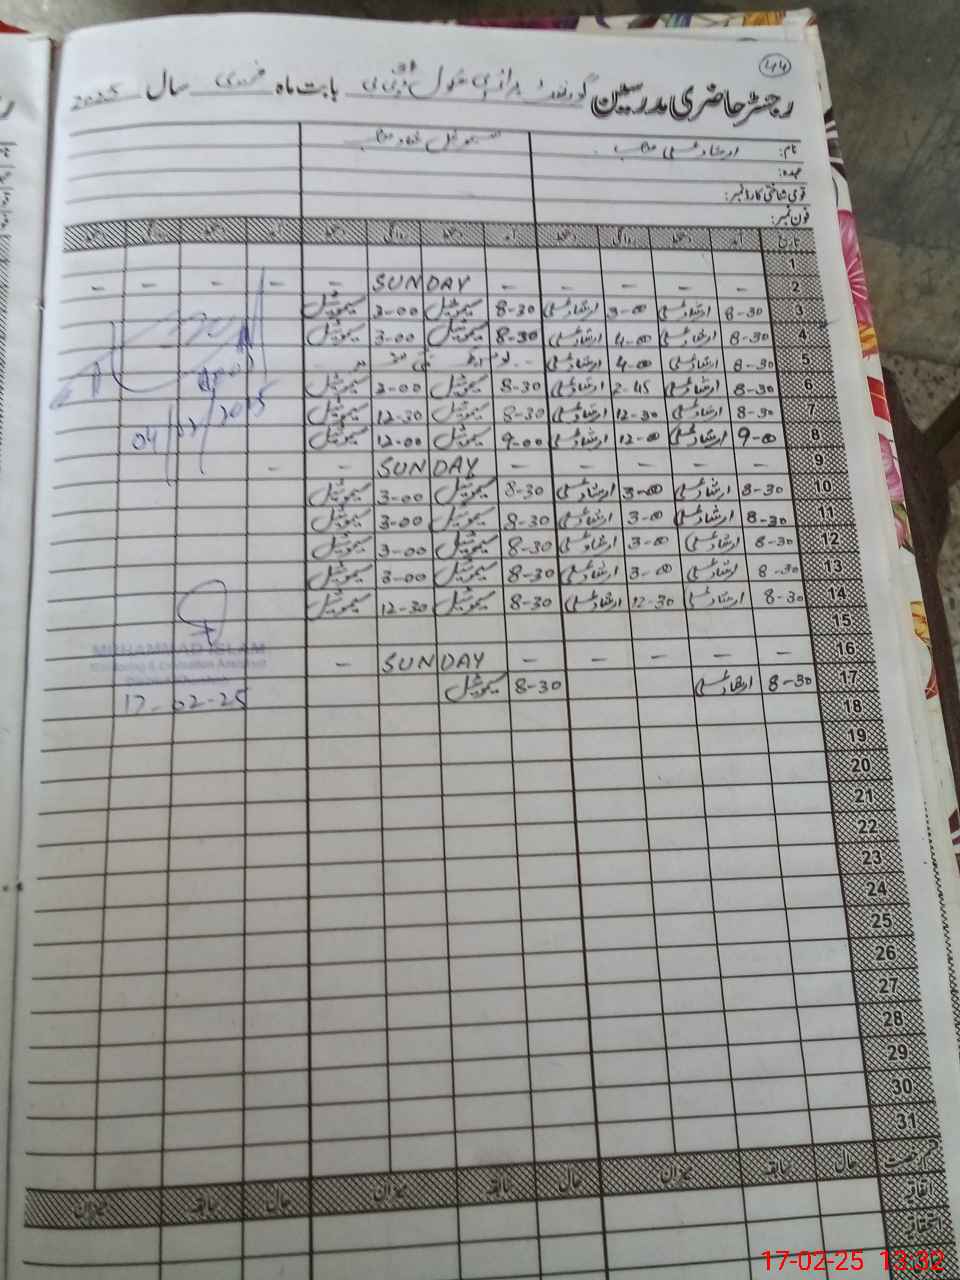 44
رجسٹر حاضری مدرسین گورنمنٹ پرائمری سکول بابت ماہ فروری سال 2025
نام: ارشاد علی صاحب
عہدہ:
قومی شناختی کارڈ نمبر:
فون نمبر:
تاریخ آمد دستخط روانگی دستخط آمد دستخط روانگی دستخط آمد دستخط روانگی دستخط
1
2 - - - - - SUNDAY - - - - -
3 8-30 ارشاد علی 3-00 ارشاد علی 8-30 سیموئیل 3-00 سیموئیل
4 8-30 ارشاد علی 4-00 ارشاد علی 8-30 سیموئیل 3-00 سیموئیل
5 8-30 ارشاد علی 4-00 ارشاد علی
6 8-30 ارشاد علی 2-45 ارشاد علی 8-30 سیموئیل 2-00 سیموئیل
7 8-30 ارشاد علی 12-30 ارشاد علی 8-30 سیموئیل 12-30 سیموئیل
8 9-00 ارشاد علی 12-00 ارشاد علی 9-00 سیموئیل 12-00 سیموئیل
04/02/2025
9 - - - - - SUNDAY - -
10 8-30 ارشاد علی 3-00 ارشاد علی 8-30 سیموئیل 3-00 سیموئیل
11 8-30 ارشاد علی 3-00 ارشاد علی 8-30 سیموئیل 3-00 سیموئیل
12 8-30 ارشاد علی 3-00 ارشاد علی 8-30 سیموئیل 3-00 سیموئیل
13 8-30 ارشاد علی 3-00 ارشاد علی 8-30 سیموئیل 3-00 سیموئیل
14 8-30 ارشاد علی 12-30 ارشاد علی 8-30 سیموئیل 12-30 سیموئیل
15
16 - - - - - SUNDAY -
MUHAMMAD ISLAM
Monitoring & Evaluation Assistant
17 8-30 ارشاد علی 8-30 سیموئیل
17-02-25
18
19
20
21
22
23
24
25
26
27
28
29
30
31
قسم رخصت حال سابقہ میزان حال سابقہ میزان حال سابقہ میزان
اتفاقیہ
استحقاقیہ
17-02-25 13:32